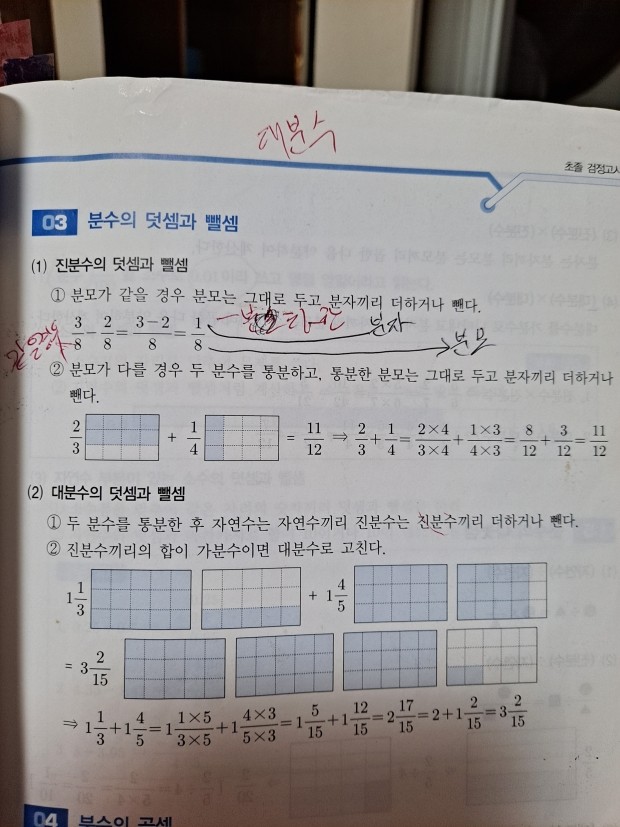 대분수
초졸 검정고시
03 분수의 덧셈과 뺄셈
(1) 진분수의 덧셈과 뺄셈
① 분모가 같을 경우 분모는 그대로 두고 분자끼리 더하거나 뺀다.
3/8 - 2/8 = 3-2/8 = 1/8 분자
분모
② 분모가 다를 경우 두 분수를 통분하고, 통분한 분모는 그대로 두고 분자끼리 더하거나
뺀다.
2/3 + 1/4 = 11/12 ⇒ 2/3 + 1/4 = 2×4/3×4 + 1×3/4×3 = 8/12 + 3/12 = 11/12
(2) 대분수의 덧셈과 뺄셈
① 두 분수를 통분한 후 자연수는 자연수끼리 진분수는 진분수끼리 더하거나 뺀다.
② 진분수끼리의 합이 가분수이면 대분수로 고친다.
1 1/3 + 1 4/5
= 3 2/15
⇒ 1 1/3 + 1 4/5 = 1 1×5/3×5 + 1 4×3/5×3 = 1 5/15 + 1 12/15 = 2 17/15 = 2 + 1 2/15 = 3 2/15
04 분수의 곱셈